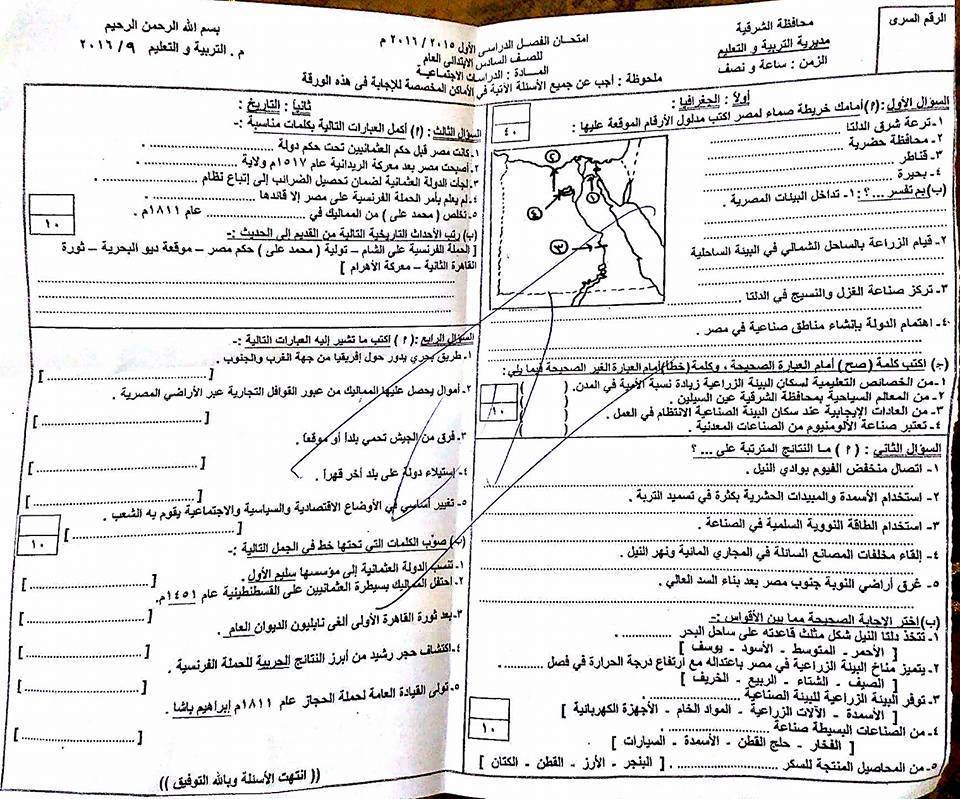 الرقم السرى
محافظة الشرقية
مديرية التربية و التعليم
الزمن : ساعة و نصف
امتحان الفصل الدراسى الأول ٢٠١٥ / ٢٠١٦ م
للصف السادس الابتدائى العام
المـــادة : الدراسات الاجتماعيـة
ملحوظة : أجب عن جميع الأسئلة الآتية في الأماكن المخصصة للإجابة فى هذه الورقة
بسم الله الرحمن الرحيم
م . التربية و التعليم ٩/ ٢٠١٦
أولاً : الجغرافيا :
السؤال الأول :(٢) أمامك خريطة صماء لمصر اكتب مدلول الأرقام الموقعة عليها :
٤٠
١- ترعة شرق الدلتا ....................
٢- محافظة حضرية ....................
٣- قناطر ....................
٤- بحيرة ....................
١
٢
٣
٤
(ب) بم تفسر ... ؟ : ١- تداخل البيئات المصرية .
٢- قيام الزراعة بالساحل الشمالي في البيئة الساحلية
٣- تركز صناعة الغزل والنسيج في الدلتا ....................
٤- اهتمام الدولة بإنشاء مناطق صناعية في مصر .
(ج) اكتب كلمة (صح) أمام العبارة الصحيحة ، وكلمة (خطأ) أمام العبارة الغير الصحيحة فيما يلي :
١- من الخصائص التعليمية لسكان البيئة الزراعية زيادة نسبة الأمية في المدن. ( )
٢- من المعالم السياحية بمحافظة الشرقية عين السيلين . ( )
٣- من العادات الإيجابية عند سكان البيئة الصناعية الانتظام في العمل . ( )
٤- تعتبر صناعة الألومنيوم من الصناعات المعدنية . ( )
١٠
السؤال الثاني : (٢) ما النتائج المترتبة على ... ؟
١- اتصال منخفض الفيوم بوادي النيل .
٢- استخدام الأسمدة والمبيدات الحشرية بكثرة في تسميد التربة .
٣- استخدام الطاقة النووية السلمية في الصناعة .
٤- إلقاء مخلفات المصانع السائلة في المجاري المائية ونهر النيل .
٥- غرق أراضي النوبة جنوب مصر بعد بناء السد العالي .
(ب) اختر الإجابة الصحيحة مما بين الأقواس :-
١- تتخذ دلتا النيل شكل مثلث قاعدته على ساحل البحر ....................
[ الأحمر - المتوسط - الأسود - يوسف ]
٢- يتميز مناخ البيئة الزراعية في مصر باعتداله مع ارتفاع درجة الحرارة في فصل ....................
[ الصيف - الشتاء - الربيع - الخريف ]
٣- توفر البيئة الزراعية للبيئة الصناعية ....................
[ الأسمدة - الآلات الزراعية - المواد الخام - الأجهزة الكهربائية ]
٤- من الصناعات البسيطة صناعة ....................
[ الفخار - حلج القطن - الأسمدة - السيارات ]
٥- من المحاصيل المنتجة للسكر .................... . [ البنجر - الأرز - القطن - الكتان ]
١٠
ثانياً : التاريخ :
السؤال الثالث : (٢) أكمل العبارات التالية بكلمات مناسبة :-
١- كانت مصر قبل حكم العثمانيين تحت حكم دولة ....................
٢- أصبحت مصر بعد معركة الريدانية عام ١٥١٧م ولاية ....................
٣- لجأت الدولة العثمانية لضمان تحصيل الضرائب إلى إتباع نظام ....................
٤- لم يعلم بأمر الحملة الفرنسية على مصر إلا قائدها ....................
٥- تخلص ( محمد على ) من المماليك في .................... عام ١٨١١م .
١٠
(ب) رتب الأحداث التاريخية التالية من القديم إلى الحديث :-
[ الحملة الفرنسية على الشام – تولية ( محمد على ) حكم مصر – موقعة ديو البحرية – ثورة
القاهرة الثانية – معركة الأهرام ]
السؤال الرابع : (٢) اكتب ما تشير إليه العبارات التالية :-
١- طريق بحري يدور حول إفريقيا من جهة الغرب والجنوب .
[ .................... ]
٢- أموال يحصل عليها المماليك من عبور القوافل التجارية عبر الأراضي المصرية .
[ .................... ]
٣- فرق من الجيش تحمي بلداً أو موقعاً .
[ .................... ]
٤- إستيلاء دولة على بلد أخر قهراً .
[ .................... ]
٥- تغيير أساسي في الأوضاع الاقتصادية والسياسية والاجتماعية يقوم به الشعب .
[ .................... ]
١٠
(ب) صوّب الكلمات التي تحتها خط في الجمل التالية :-
١- تنسب الدولة العثمانية إلى مؤسسها سليم الأول .
[ .................... ]
٢- احتفل المماليك بسيطرة العثمانيين على القسطنطينية عام ١٤٥١م.
[ .................... ]
٣- بعد ثورة القاهرة الأولى ألغى نابليون الديوان العام .
[ .................... ]
٤- اكتشاف حجر رشيد من أبرز النتائج الحربية للحملة الفرنسية .
[ .................... ]
٥- تولى القيادة العامة لحملة الحجاز عام ١٨١١م إبراهيم باشا .
[ .................... ]
(( انتهت الأسئلة وبالله التوفيق ))